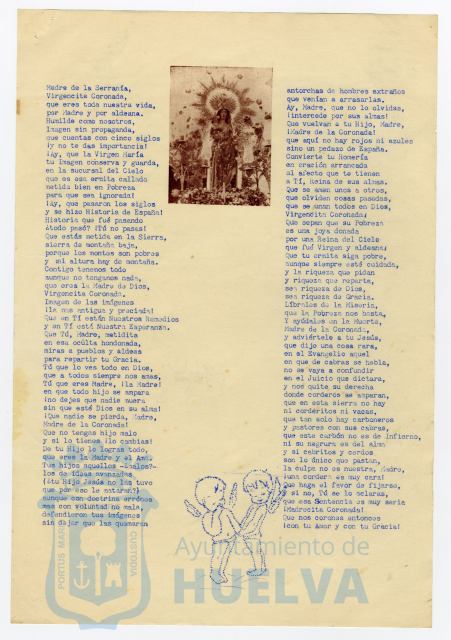 Madre de la Serranía,
Virgencita Coronada,
que eres toda nuestra vida,
por Madre y por aldeana.
Humilde como nosotros,
Imagen sin propaganda,
que cuentas con cinco siglos
¡y no te das importancia!
¡Ay, que la Virgen María
tu Imagen conserva y guarda,
en la sucursal del Cielo
que es esa ermita callada
metida bien en Pobreza
para que sea ignorada!
¡Ay, que pasaron los siglos
y se hizo Historia de España!
Historia que fué pasando
¿todo pasó? ¡Tú no pasas!
Que estás metida en la Sierra,
sierra de montaña baja,
porque los montes son pobres
y sí altura hay de montaña.
Contigo tenemos todo
aunque no tengamos nada,
que eres la Madre de Dios,
Virgencita Coronada.
Imagen de las imágenes
¡la más antigua y preciada!
Que en Tí están Nuestros Remedios
y en Tí está Nuestra Esperanza.
Que Tú, Madre, metidita
en esa oculta hondonada,
miras a pueblos y aldeas
para repartir tu Gracia.
Tú que lo ves todo en Dios,
que a todos siempre nos amas,
Tú que eres Madre, ¡la Madre!
en que todo hijo se ampara
¡no dejes que nadie muera
sin que esté Dios en su alma!
¡Que nadie se pierda, Madre,
Madre de la Coronada!
Que no tengas hijo malo
y si lo tienes ¡lo cambias!
De tu Hijo lo logras todo,
que eres la Madre y el Ama.
Tus hijos aquellos -¿malos?-
los de ideas avanzadas
(¿tu Hijo Jesús no las tuvo
que por eso le mataran?)
aunque con doctrina errónea
mas con voluntad no mala,
defendieron tus imágenes
sin dejar que las quemaran
antorchas de hombres extraños
que venían a arrasarlas.
¡Ay, Madre, que no lo olvidas,
¡intercede por sus almas!
Que vuelvan a tu Hijo, Madre,
¡Madre de la Coronada!
que aquí no hay rojos ni azules
sino un pedazo de España.
Convierte tu Romería
en oración arrancada
al afecto que te tienen
a Tí, Reina de sus almas.
Que se amen unos a otros,
que olviden cosas pasadas,
que se unan todos en Dios,
Virgencita Coronada!
Que sepan que su Pobreza
es una joya donada
por una Reina del Cielo
que fué Virgen y aldeana;
Que tu ermita siga pobre,
aunque siempre esté cuidada,
y la riqueza que pidan
y riqueza que reparta,
sea riqueza de Dios,
sea riqueza de Gracia.
Líbralos de la Miseria,
que la Pobreza nos basta,
Y ayúdales en la Muerte,
Madre de la Coronada,
y adviértele a tu Jesús,
que dijo una cosa rara,
en el Evangelio aquel
en que de cabras se habla,
no se vaya a confundir
en el Juicio que dictara,
y nos quite su derecha
donde corderos se amparan,
que en esta sierra no hay
ni corderitos ni vacas,
que tan solo hay carboneros
y pastores con sus cabras,
que este carbón no es de Infierno,
ni su negrura es del alma
y si cabritos y cerdos
son lo único que pastan,
la culpa no es nuestra, Madre,
¡una cordera es muy cara!
Que haga el favor de fijarse,
y si no, Tú se lo aclaras,
que esa Sentencia es muy seria
¡Madrecita Coronada!
Que nos corones entonces
¡con tu Amor y con tu Gracia!
PORTUS MARIS
CUSTODIA
Ayuntamiento de
HUELVA